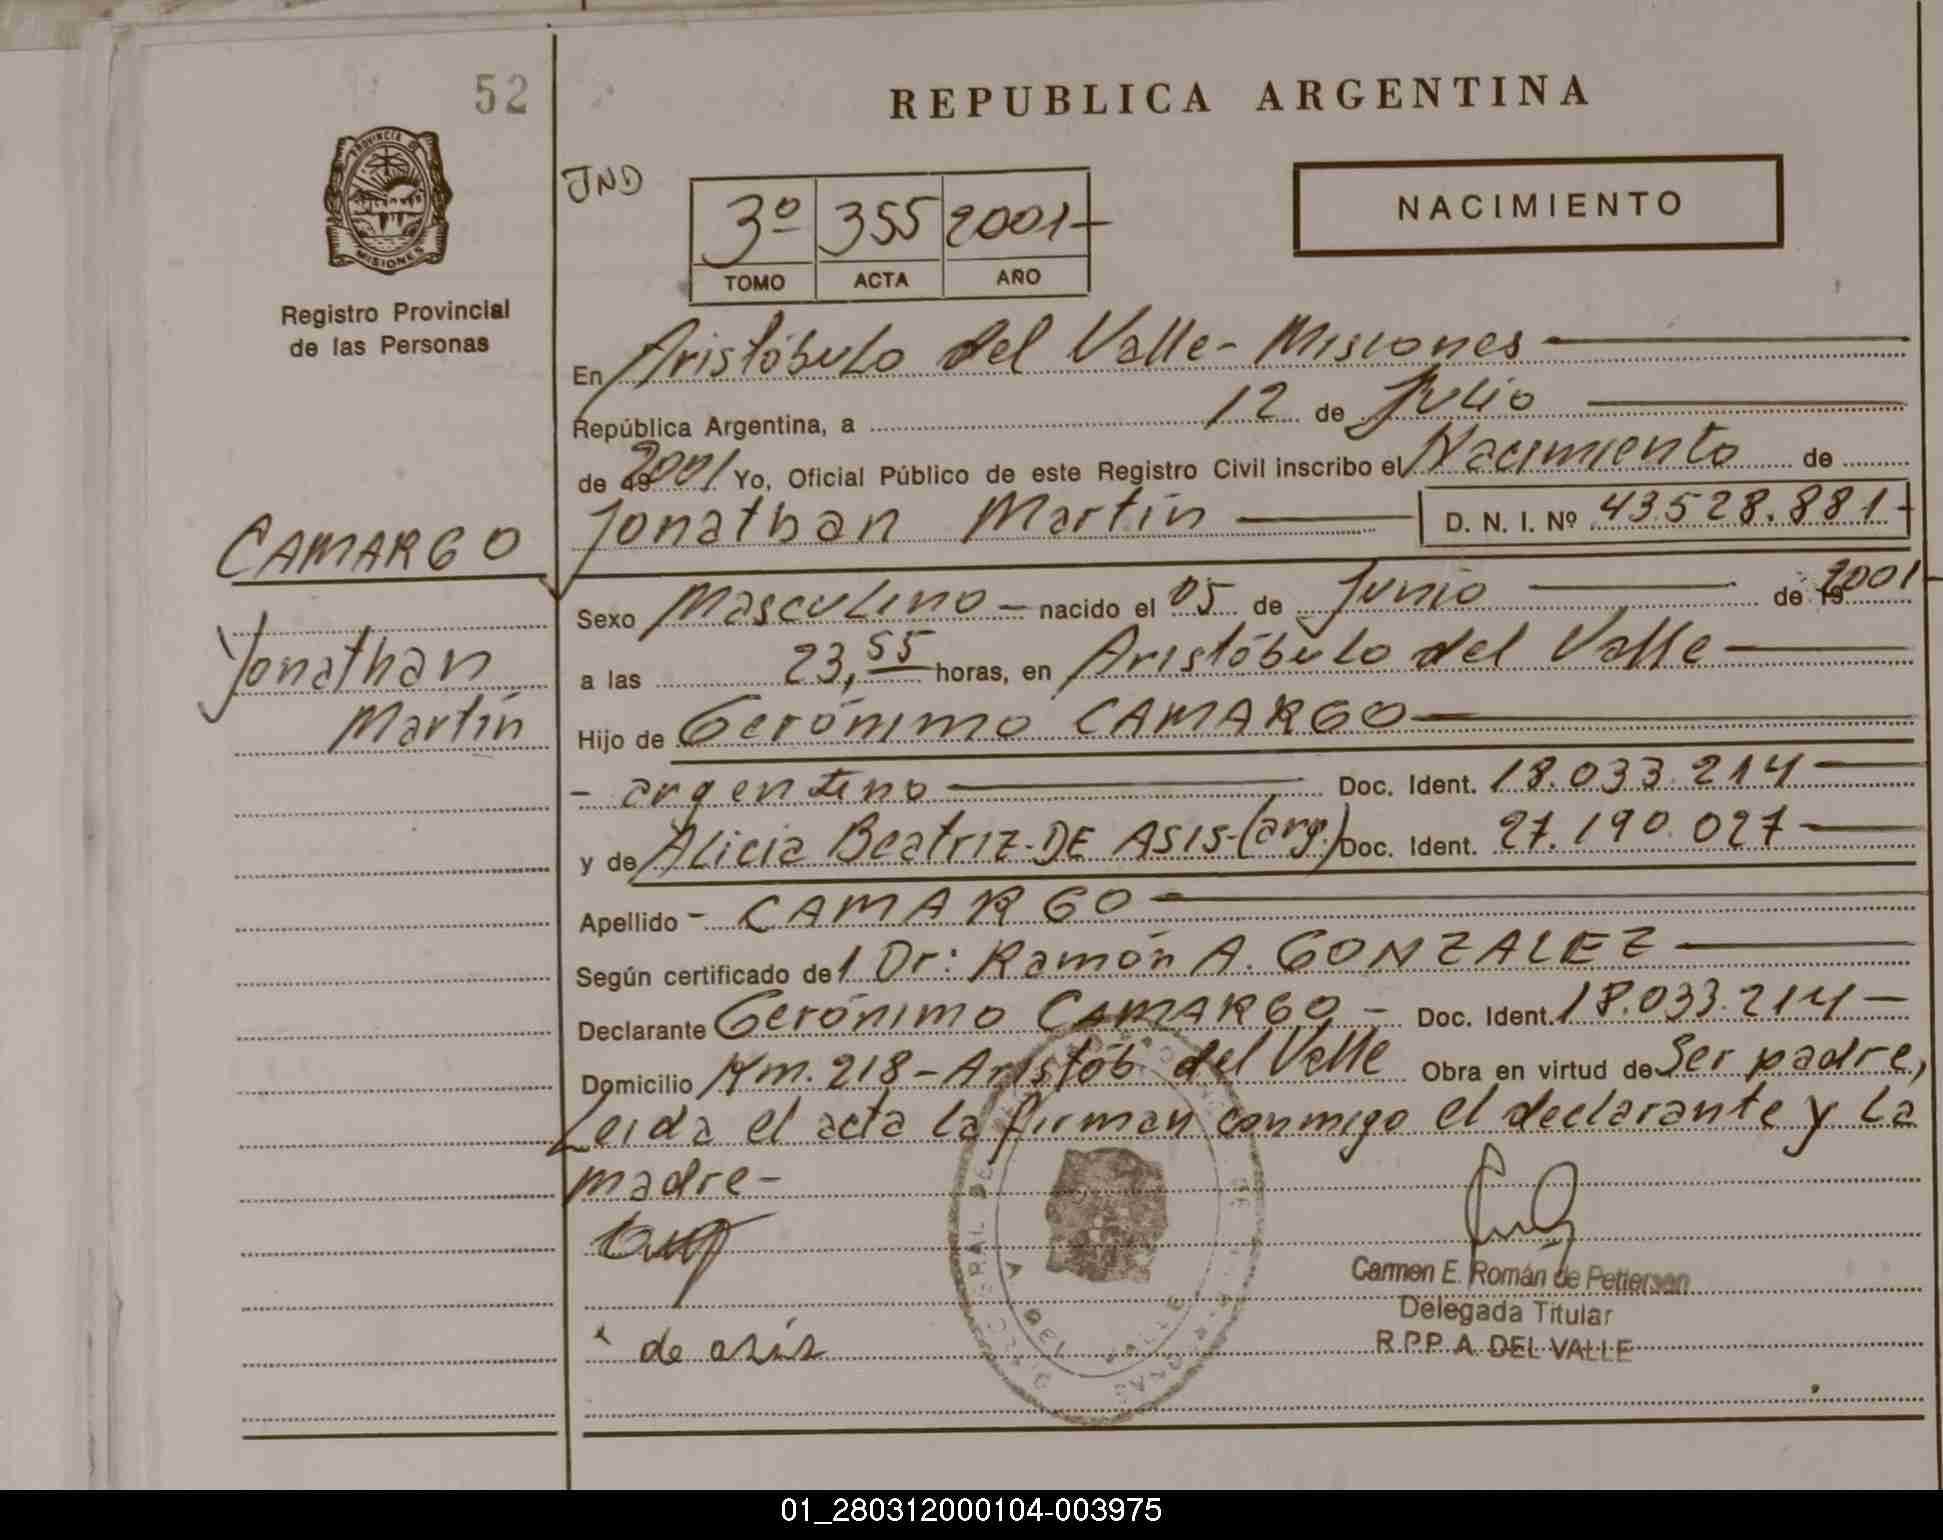 52
REPUBLICA ARGENTINA
PROVINCIA DE
MISIONES
Registro Provincial
de las Personas
JND
3º 355 2001-
TOMO ACTA AÑO
NACIMIENTO
En Aristóbulo del Valle - Misiones
República Argentina, a 12 de Julio
de 2001 Yo, Oficial Público de este Registro Civil inscribo el Nacimiento de
Jonathan Martín D. N. I. Nº 43.528.881-
CAMARGO
Jonathan
Martín
Sexo Masculino - nacido el 05 de Junio de 2001
a las 23,55 horas, en Aristóbulo del Valle
Hijo de Gerónimo CAMARGO
- argentino Doc. Ident. 18.033.214
y de Alicia Beatriz - DE ASIS - (arg.) Doc. Ident. 27.190.027
Apellido - CAMARGO
Según certificado del Dr: Ramón A. GONZALEZ
Declarante Gerónimo CAMARGO - Doc. Ident. 18.033.214 -
Domicilio Km. 218 - Aristób. del Valle Obra en virtud de Ser padre,
Leida el acta la firman conmigo el declarante y la
madre -
de asis
Carmen E. Román de Pettersen
Delegada Titular
R.P.P. A. DEL VALLE
01_280312000104-003975